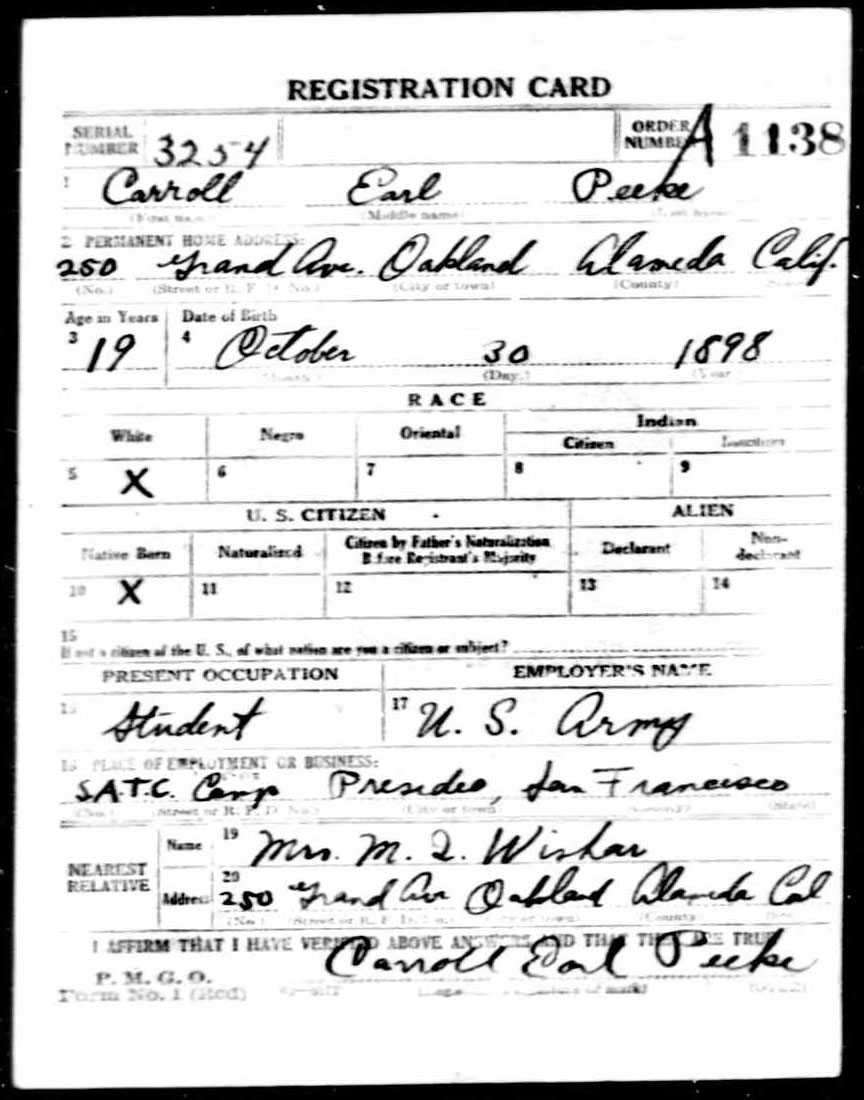 REGISTRATION CARD
SERIAL NUMBER 3254 ORDER NUMBER A 1138
1 Carroll Earl Peeke
(First name) (Middle name) (Last name)
2 PERMANENT HOME ADDRESS:
250 Grand Ave. Oakland Alameda Calif.
(No.) (Street or R. F. D. No.) (City or town) (County)
Age in Years Date of Birth
3 19 4 October 30 1898
(Month.) (Day.) (Year
RACE
White Negro Oriental Indian
Citizen
5 X 6 7 8 9
U. S. CITIZEN ALIEN
Native Born Naturalized Citizen by Father's Naturalization Before Registrant's Majority Declarant Non-declarant
10 X 11 12 13 14
15
If not a citizen of the U. S., of what nation are you a citizen or subject?
PRESENT OCCUPATION EMPLOYER'S NAME
16 Student 17 U. S. Army
18 PLACE OF EMPLOYMENT OR BUSINESS:
S.A.T.C. Camp Presidio, San Francisco
(No.) (Street or R. F. D. No.) (City or town) (County) (State)
NEAREST RELATIVE
Name 19 Mrs. M. I. Wishar
Address 20 250 Grand Av Oakland Alameda Cal
(No.) (Street or R. F. D. No.) (City or town) (County)
I AFFIRM THAT I HAVE VERIFIED ABOVE ANSWERS AND THAT THEY ARE TRUE
P. M. G. O.
Form No. 1 (Red) Carroll Earl Peeke
(Registrant's signature or mark)